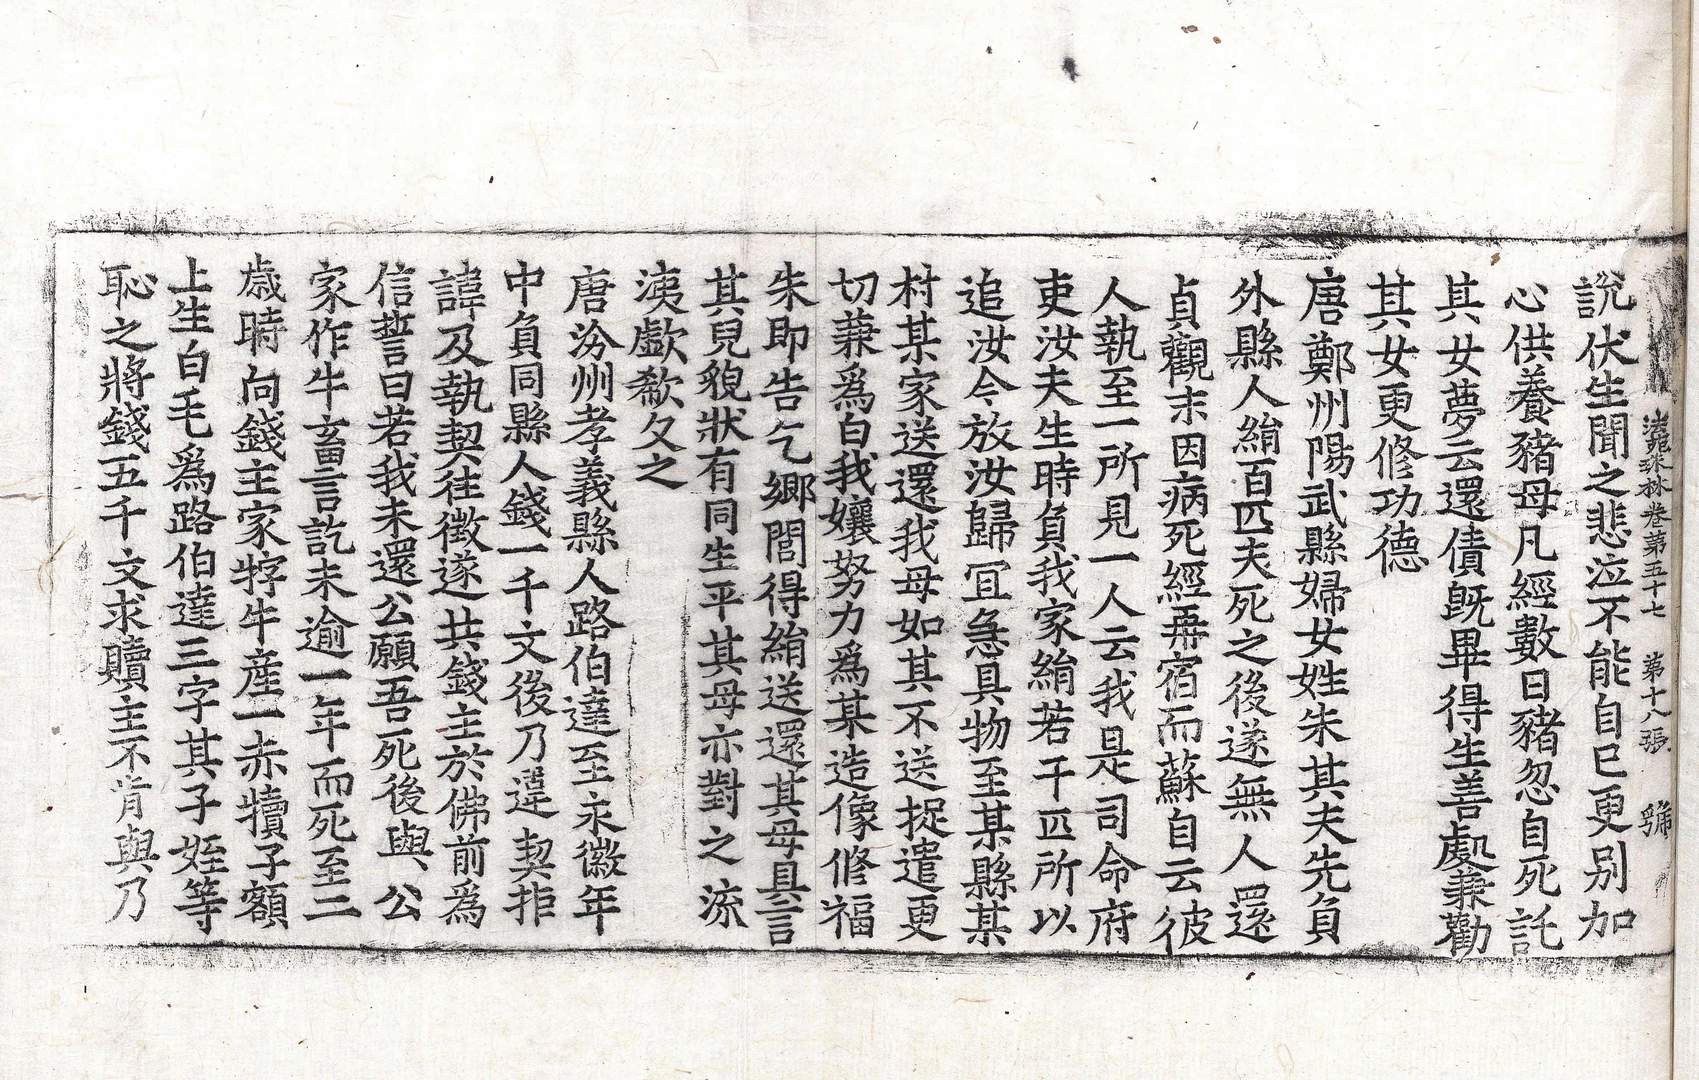 法苑珠林卷第五十七 第十八張 號
說伏生聞之悲泣不能自已更别加
心供養豬母凡經數日豬忽自死託
其女夢云還債旣畢得生善處兼勸
其女更修功德
唐鄭州陽武縣婦女姓朱其夫先負
外縣人絹百匹夫死之後遂無人還
貞觀末因病死經再宿而蘇自云彼
人執至一所見一人云我是司命府
吏汝夫生時負我家絹若干匹所以
追汝今放汝歸冝急具物至某縣某
村某家送還我母如其不送捉遣更
切兼爲白我孃努力爲某造像修福
朱即告乞鄉閭得絹送還其母具言
其兒貌狀有同生平其母亦對之流
洟歔欷久之
唐汾州孝義縣人路伯達至永徽年
中負同縣人錢一千文後乃違契拒
諱及執契往徴遂共錢主於佛前爲
信誓曰若我未還公願吾死後與公
家作牛畜言訖未逾一年而死至二
歳時向錢主家牸牛産一赤犢子額
上生白毛爲路伯達三字其子姪等
恥之將錢五千文求贖主不肯與乃